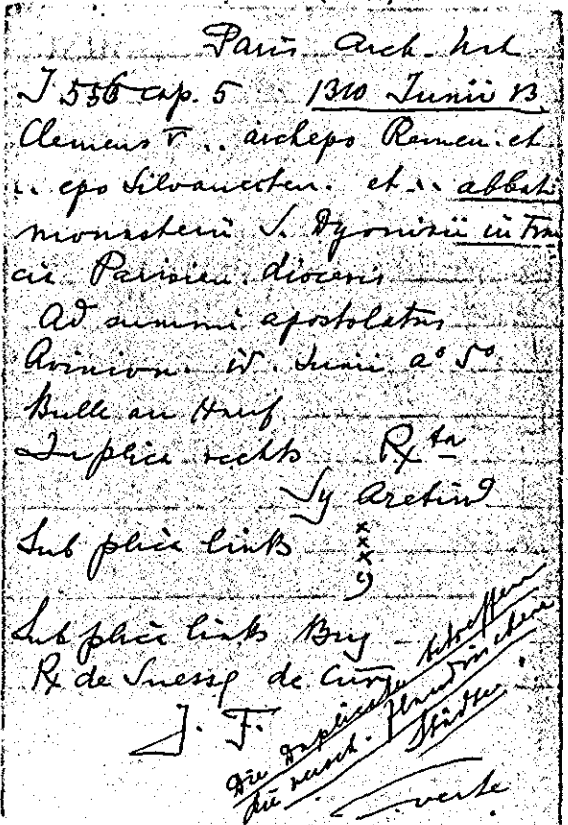 Paris Arch. Nat
J 556 cap. 5 1310 Junii 13.
Clemens V .. archepo Remen. et
.. epo Silvanecten. et .. abbati
monasterii S. Dyonisii in Fran
cia Parisien. diocesis
Ad summi apostolatus
Avinion. id. Junii a° 5°
Bulle an Hanf
In plica rechts Rx ta
Jy Aretin9
Sub plica links x
x
x
9
Sub plica links
Rx de Suessa de Curia
J. F.
Die Duplicate betreffen
die versch. flandrischen
Städte.
verte